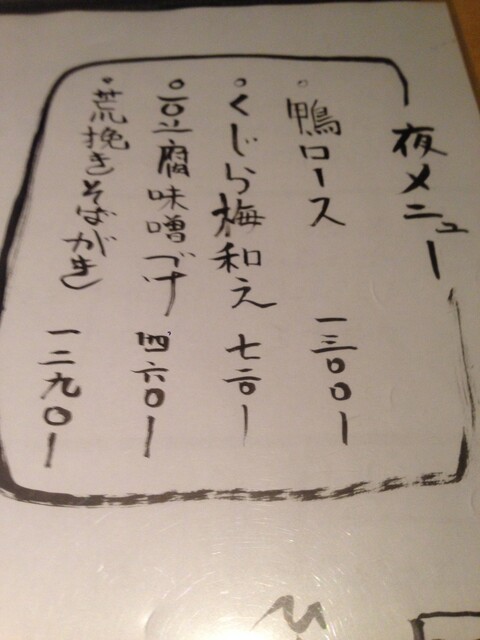 夜メニュー
。鴨ロース 一三〇〇ー
。くじら梅和え 七六〇ー
。豆腐味噌づけ 四六〇ー
。荒挽きそばがき 一二九〇ー